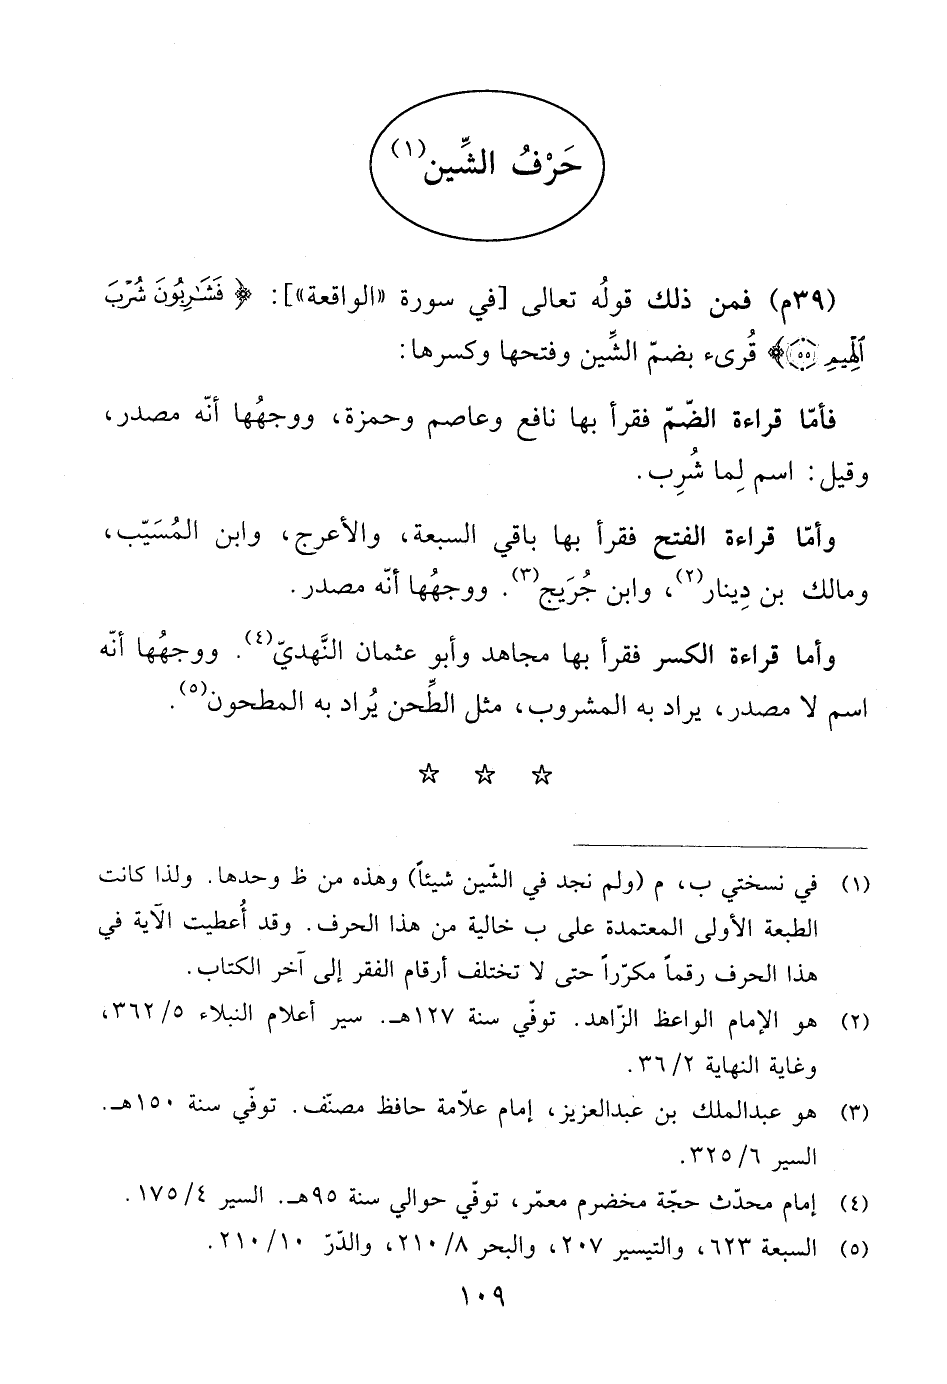 حَرْفُ الشِّين(١)
(٣٩م) فمن ذلك قولُه تعالى [في سورة «الواقعة»]: ﴿فَشَٰرِبُونَ شُرْبَ
ٱلْهِيمِ ۝٥٥﴾ قُرىء بضمّ الشِّين وفتحها وكسرها:
فأمّا قراءة الضّمّ فقرأ بها نافع وعاصم وحمزة، ووجهُها أنّه مصدر،
وقيل: اسم لِما شُرِب.
وأمّا قراءة الفتح فقرأ بها باقي السبعة، والأعرج، وابن المُسَيّب،
ومالك بن دِينار(٢)، وابن جُرَيج(٣). ووجهُها أنّه مصدر.
وأما قراءة الكسر فقرأ بها مجاهد وأبو عثمان النَّهديّ(٤). ووجهُها أنّه
اسم لا مصدر، يراد به المشروب، مثل الطِّحن يُراد به المطحون(٥).
☆ ☆ ☆
(١) في نسختي ب، م (ولم نجد في الشّين شيئاً) وهذه من ظ وحدها. ولذا كانت
الطبعة الأولى المعتمدة على ب خالية من هذا الحرف. وقد أُعطيت الآية في
هذا الحرف رقماً مكرّراً حتى لا تختلف أرقام الفقر إلى آخر الكتاب.
(٢) هو الإمام الواعظ الزّاهد. توفّي سنة ١٢٧هـ. سير أعلام النبلاء ٣٦٢/٥،
وغاية النهاية ٣٦/٢.
(٣) هو عبدالملك بن عبدالعزيز، إمام علاّمة حافظ مصنّف. توفّي سنة ١٥٠هـ.
السير ٣٢٥/٦.
(٤) إمام محدّث حجّة مخضرم معمّر، توفّي حوالي سنة ٩٥هـ. السير ١٧٥/٤.
(٥) السبعة ٦٢٣، والتيسير ٢٠٧، والبحر ٢١٠/٨، والدّرّ ٢١٠/١٠.
١٠٩